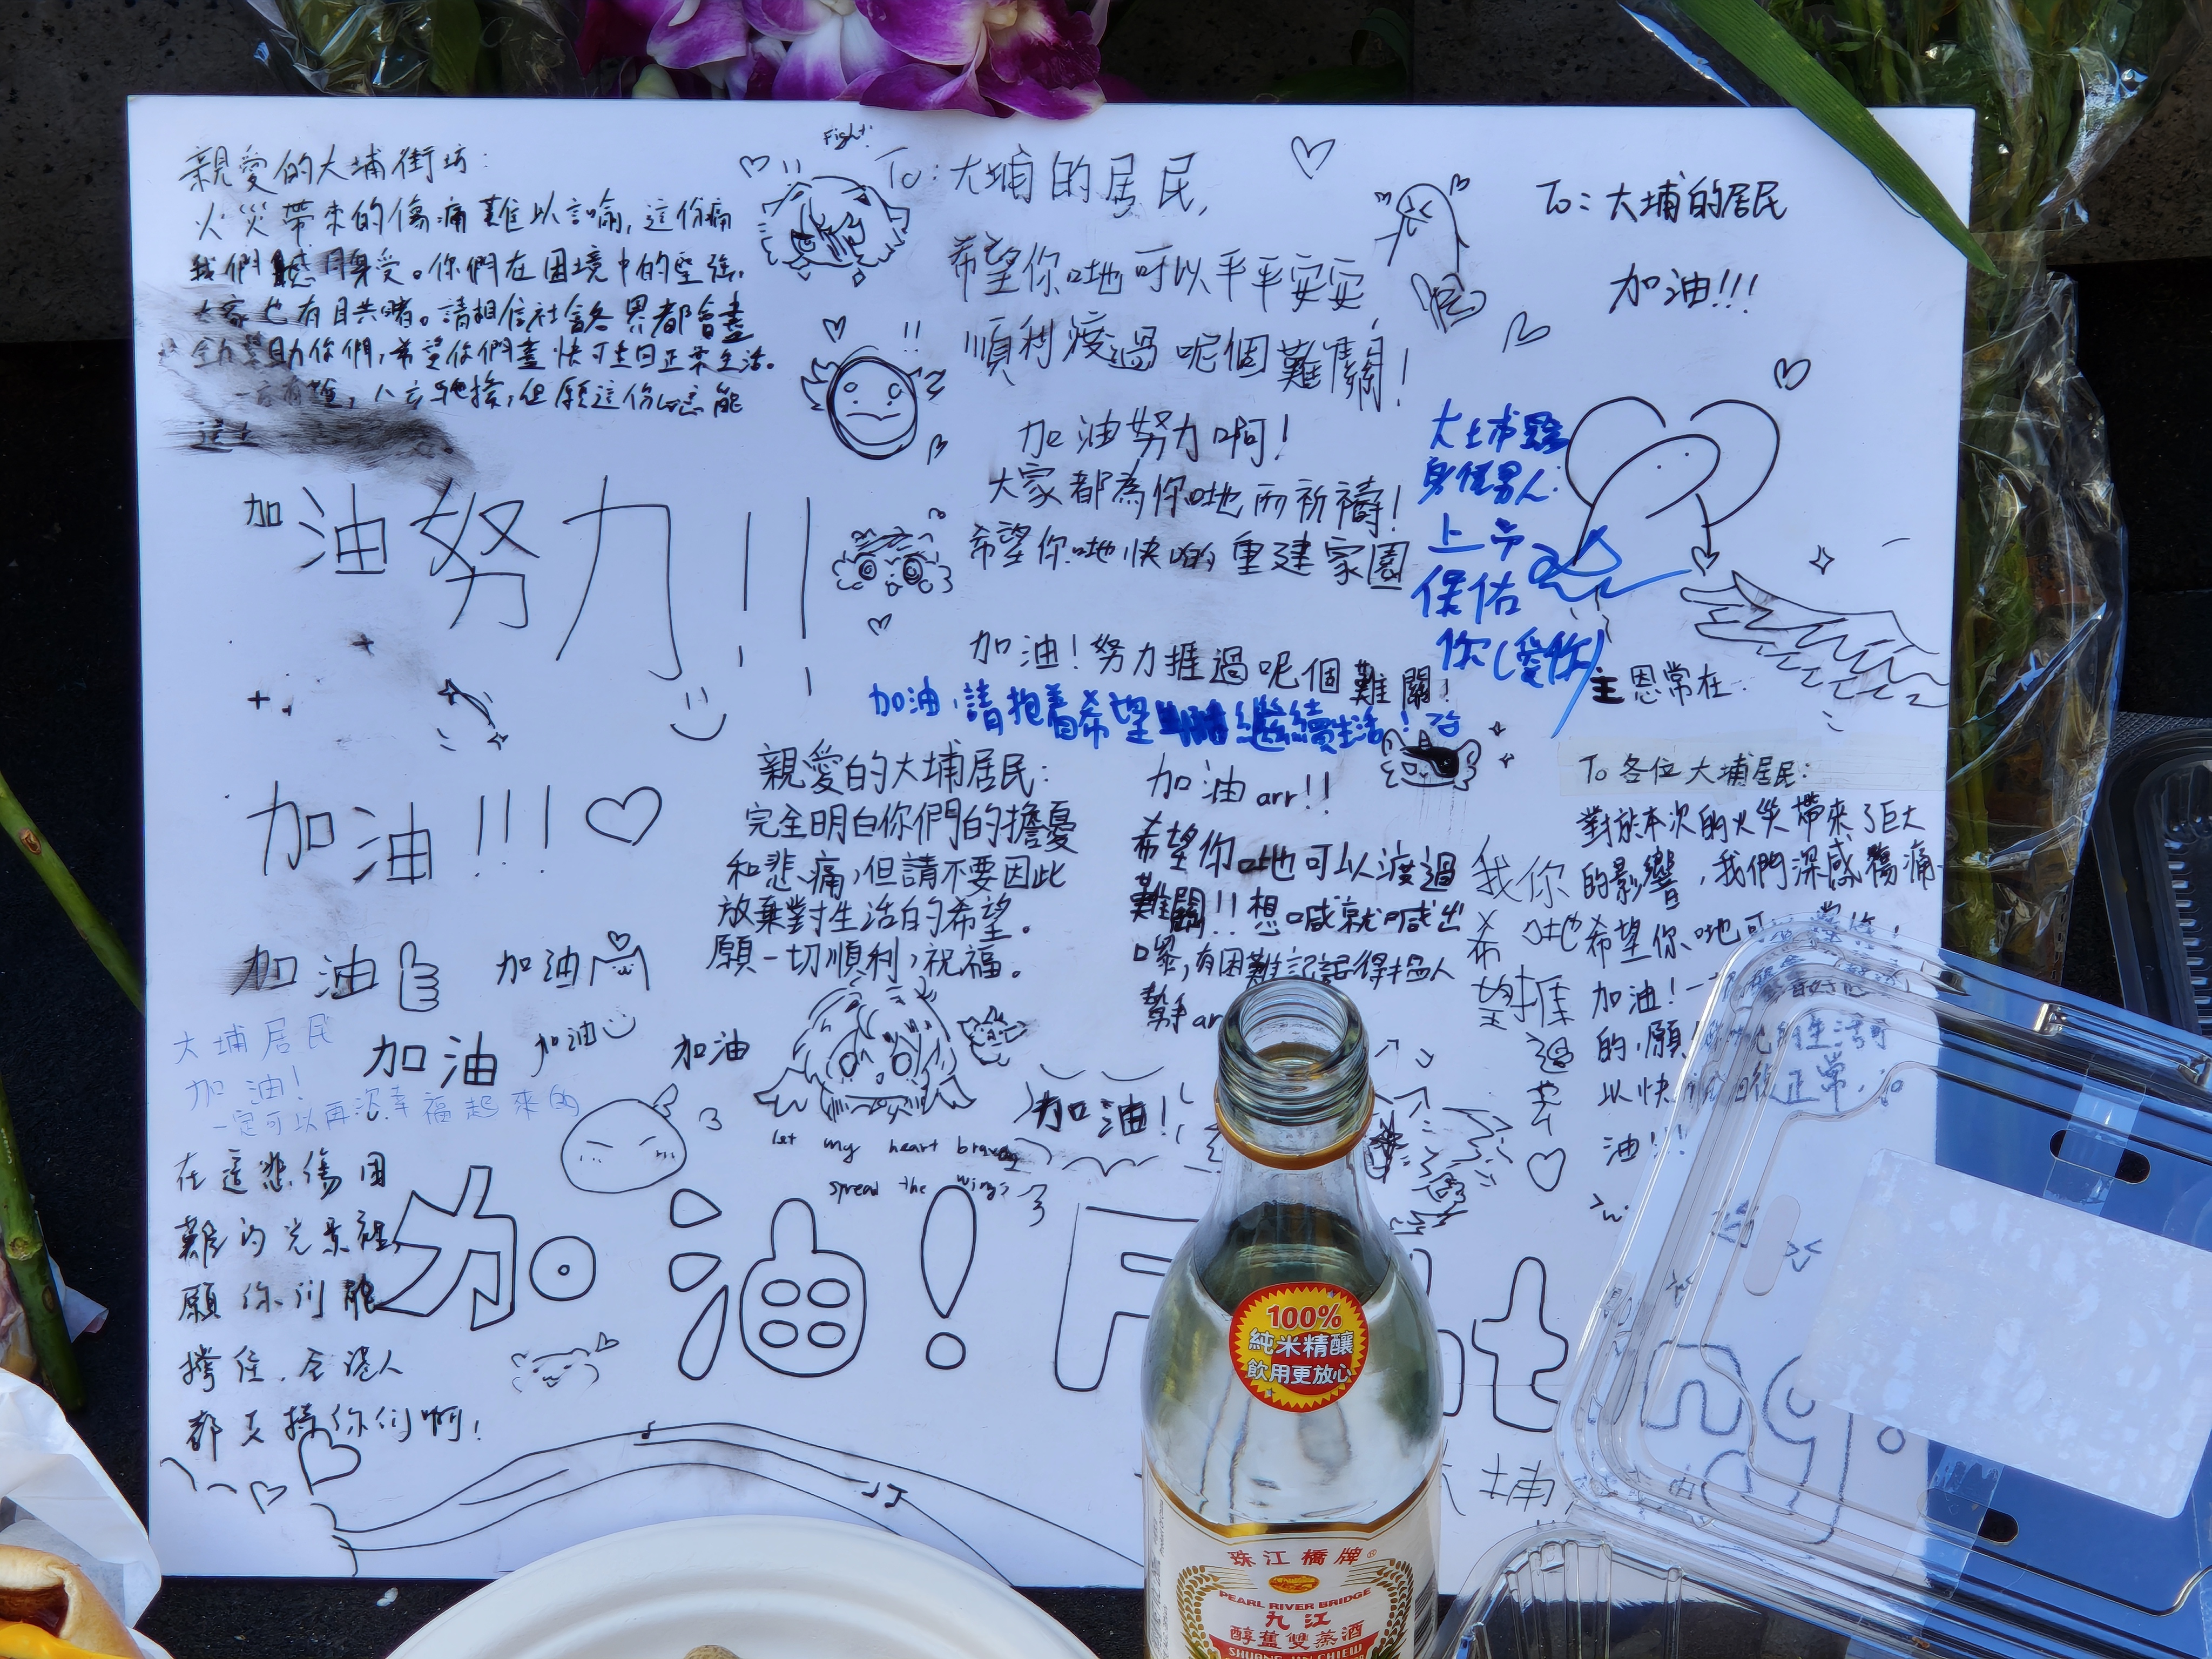 親愛的大埔街坊：
火災帶來的傷痛難以言喻，這份痛
我們感同身受。你們在困境中的堅強，
大家也有目共睹。請相信社會各界都會盡
全力幫助你們，希望你們盡快可重回正常生活。
一方有難，八方馳援，但願這份心意能
這
加油努力!!
加油!!!
加油
加油
大埔居民
加油!
一定可以再次幸福起來的
加油
加油
加油
在這悲傷困
難的光景裡,
願你们能
撐住，全港人
都支持你们啊!
Fight!
To：大埔的居民,
希望你哋可以平平安安,
順利渡過呢個難關!
加油努力啊!
大家都為你哋而祈禱!
希望你哋快啲重建家園
加油!努力捱過呢個難關!
加油,請抱着希望繼續生活!
親愛的大埔居民：
完全明白你們的擔憂
和悲痛，但請不要因此
放棄對生活的希望。
願一切順利，祝福。
加油arr!!
希望你哋可以渡過
難關!!想喊就喊出
嚟,有困難記得搵人
幫手ar
let my heart bravely
spread the wings
加油!
加油!
To：大埔的居民
加油!!!
上帝
保佑
你(愛你)
主恩常在
To 各位大埔居民：
對於本次的火災帶來了巨大
的影響，我們深感傷痛
希望你哋可
加油!一
的,願
以快 正常,加
油!!
我希望
你哋捱過去
埔
100%
純米精釀
飲用更放心
珠江橋牌
PEARL RIVER BRIDGE
九江
醇舊雙蒸酒
SHUANG JIN CHIEW